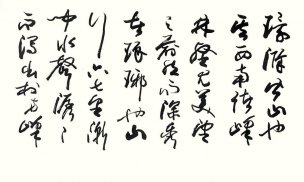 環滁皆山也
其西南諸峰
林壑尤美望
之蔚然而深秀
者瑯琊也山
行六七里漸
聞水聲潺々
而瀉出於兩峰